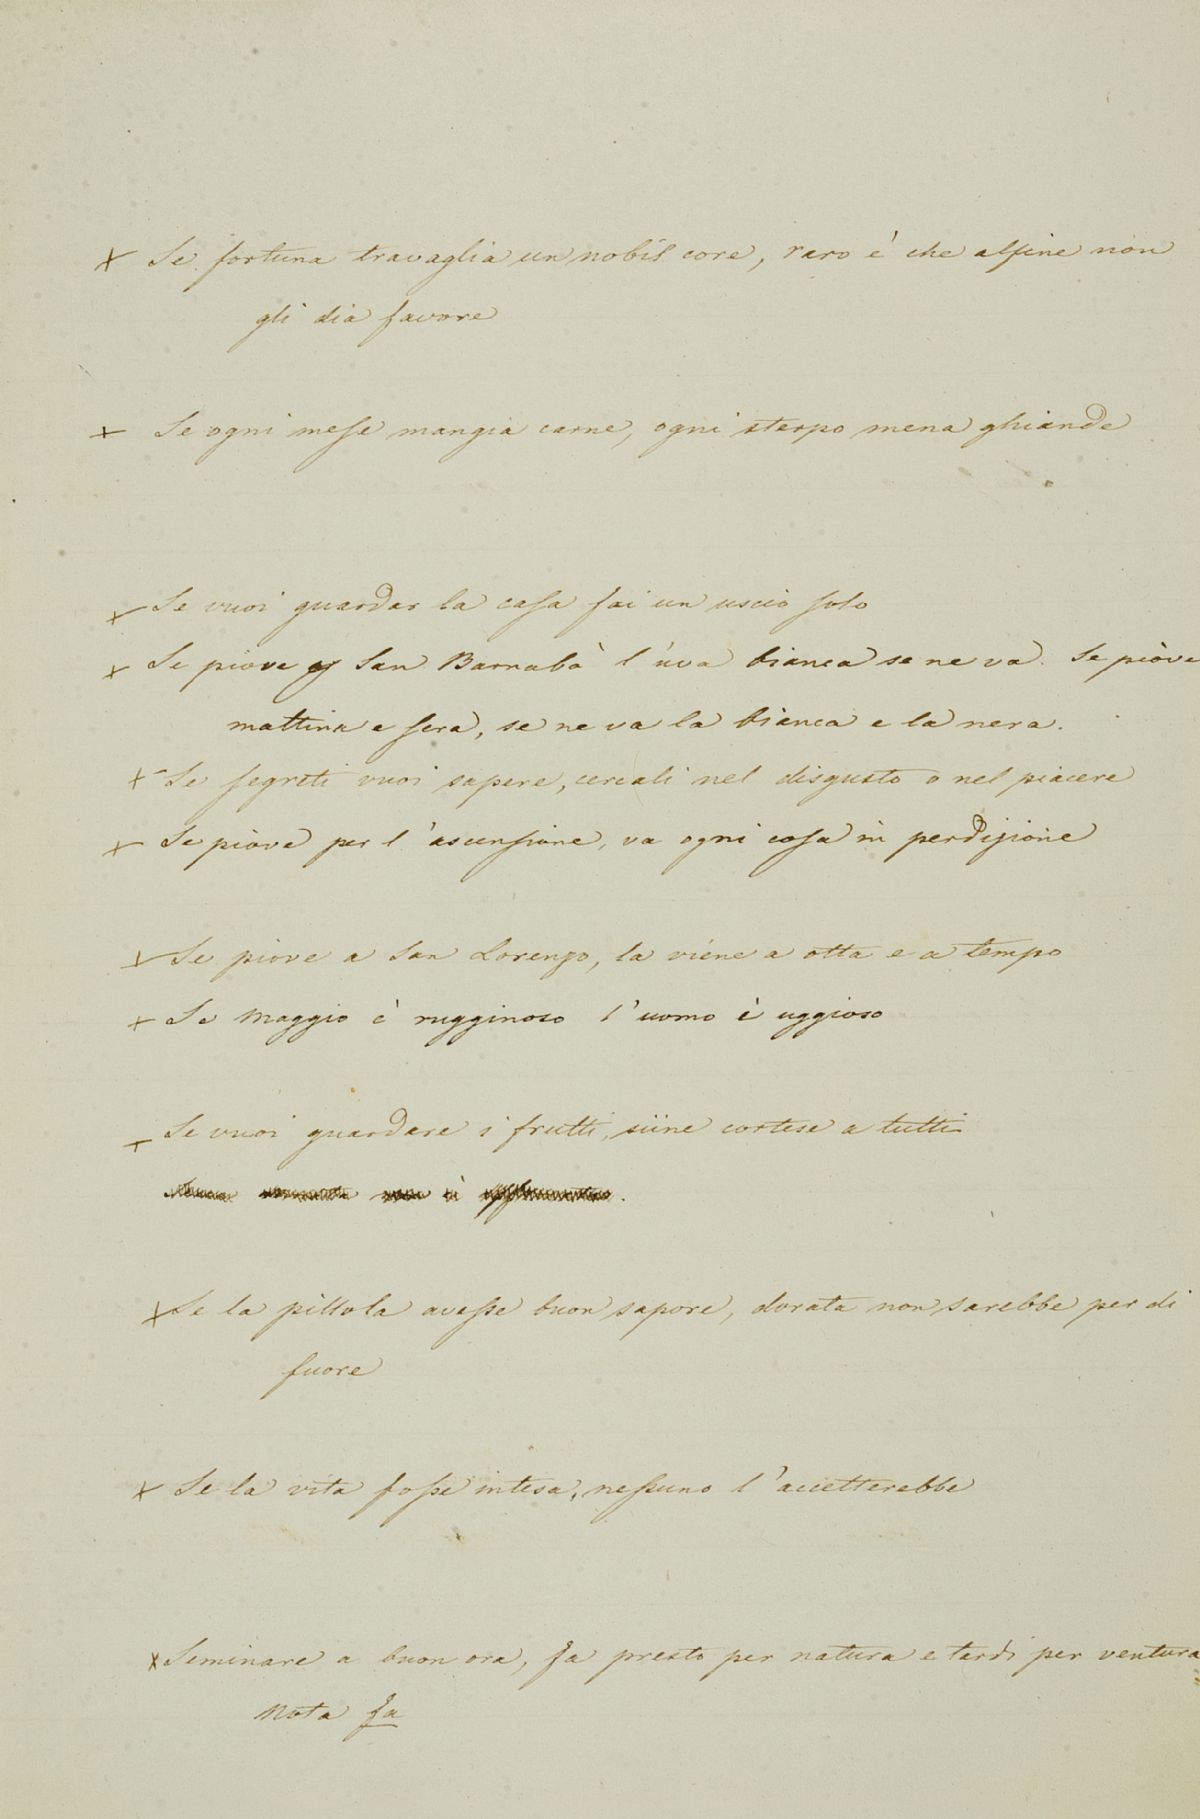 × Se fortuna travaglia un nobil core, raro è che alfine non
gli dia favore
× Se ogni mese mangia carne, ogni sterpo mena ghiande
× Se vuoi guardar la casa fai un uscio solo
× Se piove San Barnabà l'uva bianca se ne va. Se piòve
mattina e sera, se ne va la bianca e la nera.
× Se segreti vuoi sapere, cercali nel disgusto o nel piacere
× Se piòve per l'ascensione, va ogni cosa in perdizione
× Se piove a San Lorenzo, la viene a otta e a tempo
× Se Maggio è rugginoso l'uomo è uggioso
× Se vuoi guardare i frutti, siine cortese a tutti
× Se la pillola avesse buon sapore, dorata non sarebbe per di
fuore
× Se la vita fosse intesa, nessuno l'accetterebbe
× Seminare a buon ora, fa presto per natura e tardi per ventura
Nota fa